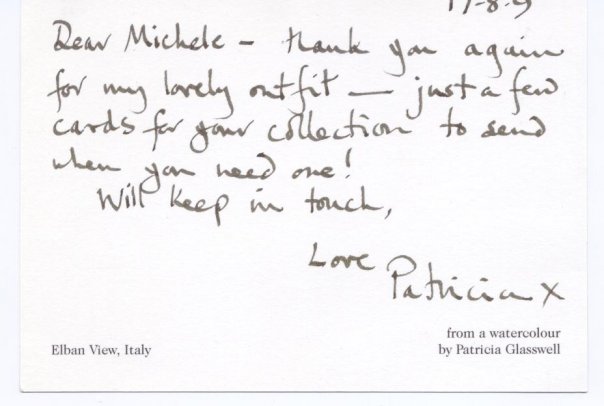 17-8-9
Dear Michele - thank you again
for my lovely outfit — just a few
cards for your collection to send
when you need one!
Will keep in touch,
Love
Patricia x
from a watercolour
Elban View, Italy
by Patricia Glasswell